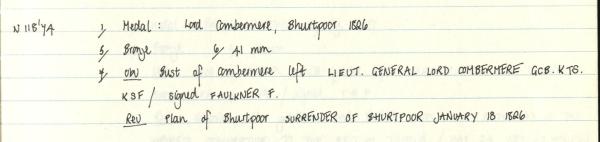 N 118'74 1, Medal: Lord Combermere, Bhurtpoor 1826
5, Bronze 6/ 41 mm
7, Obv Bust of Combermere left LIEUT. GENERAL LORD COMBERMERE GCB. KTS.
KSF / signed FAULKNER F.
Rev Plan of Bhurtpoor SURRENDER OF BHURTPOOR JANUARY 18 1826